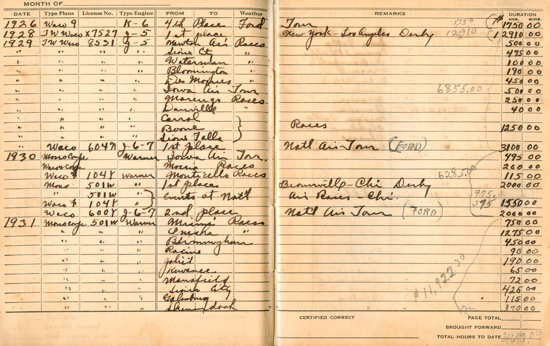 MONTH OF
DATE Type Plane License No. Type Engine FROM TO Weather REMARKS DURATION
1926 Waco 9 K-6 4th Place Ford Tour 1750 1750 00
1928 J W Waco X7527 J-5 1st place New York - Los Angeles Derby 12910 12910 00
1929 J W Waco 8531 J-5 Air Races 500 00
" " " " Sioux Cty 475 00
" " " " Waterman " 100 00
" " " " Bloomington 190 00
" " " " Des Moines " 450 00
" " " " Iowa Air Tour 6855.00 500 00
" " " " Marengo Races 250 00
" " " " Danville " 40 00
" " " " Carrol
" " " " Boone Races 1250 00
" " " " Sioux Falls
" Waco 604N J-6-7 1st place Natl Air Tour (FORD) 3100 00
1930 MonoCoupe Warner Iowa Air Tour 495 00
" Races 200 00
" Waco 104Y Warner Monticello Races 115 00
" Mono 501W " 1st place Brownsville - Chi Derby 2000 00
" " 501W " Events at Nat'l Air Races - Chi. 975
" Waco 104Y " 575 1550 00
" Waco 600Y J-6-7 2nd place Nat'l Air Tour (FORD) 2000 00
1931 MonoCoupe 501W Warner Miami Races 750 00
" " " " " 1275 00
" " " " Birmingham " 450 00
" " " " Racine " 90 00
" " " " Joliet " 190 00
" " " " Kewanee " 65 00
" " " " Mansfield " $11,922.00 72 00
" " " " Sioux City " 425 00
" " " " Galesburg " 115 00
" " " " Shenandoah " 370 00
CERTIFIED CORRECT PAGE TOTAL
BROUGHT FORWARD
TOTAL HOURS TO DATE